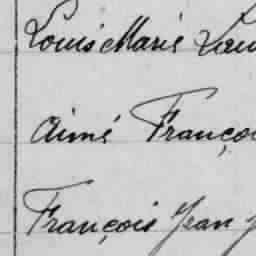 Louis Marie
Aimé Franço
François Jean